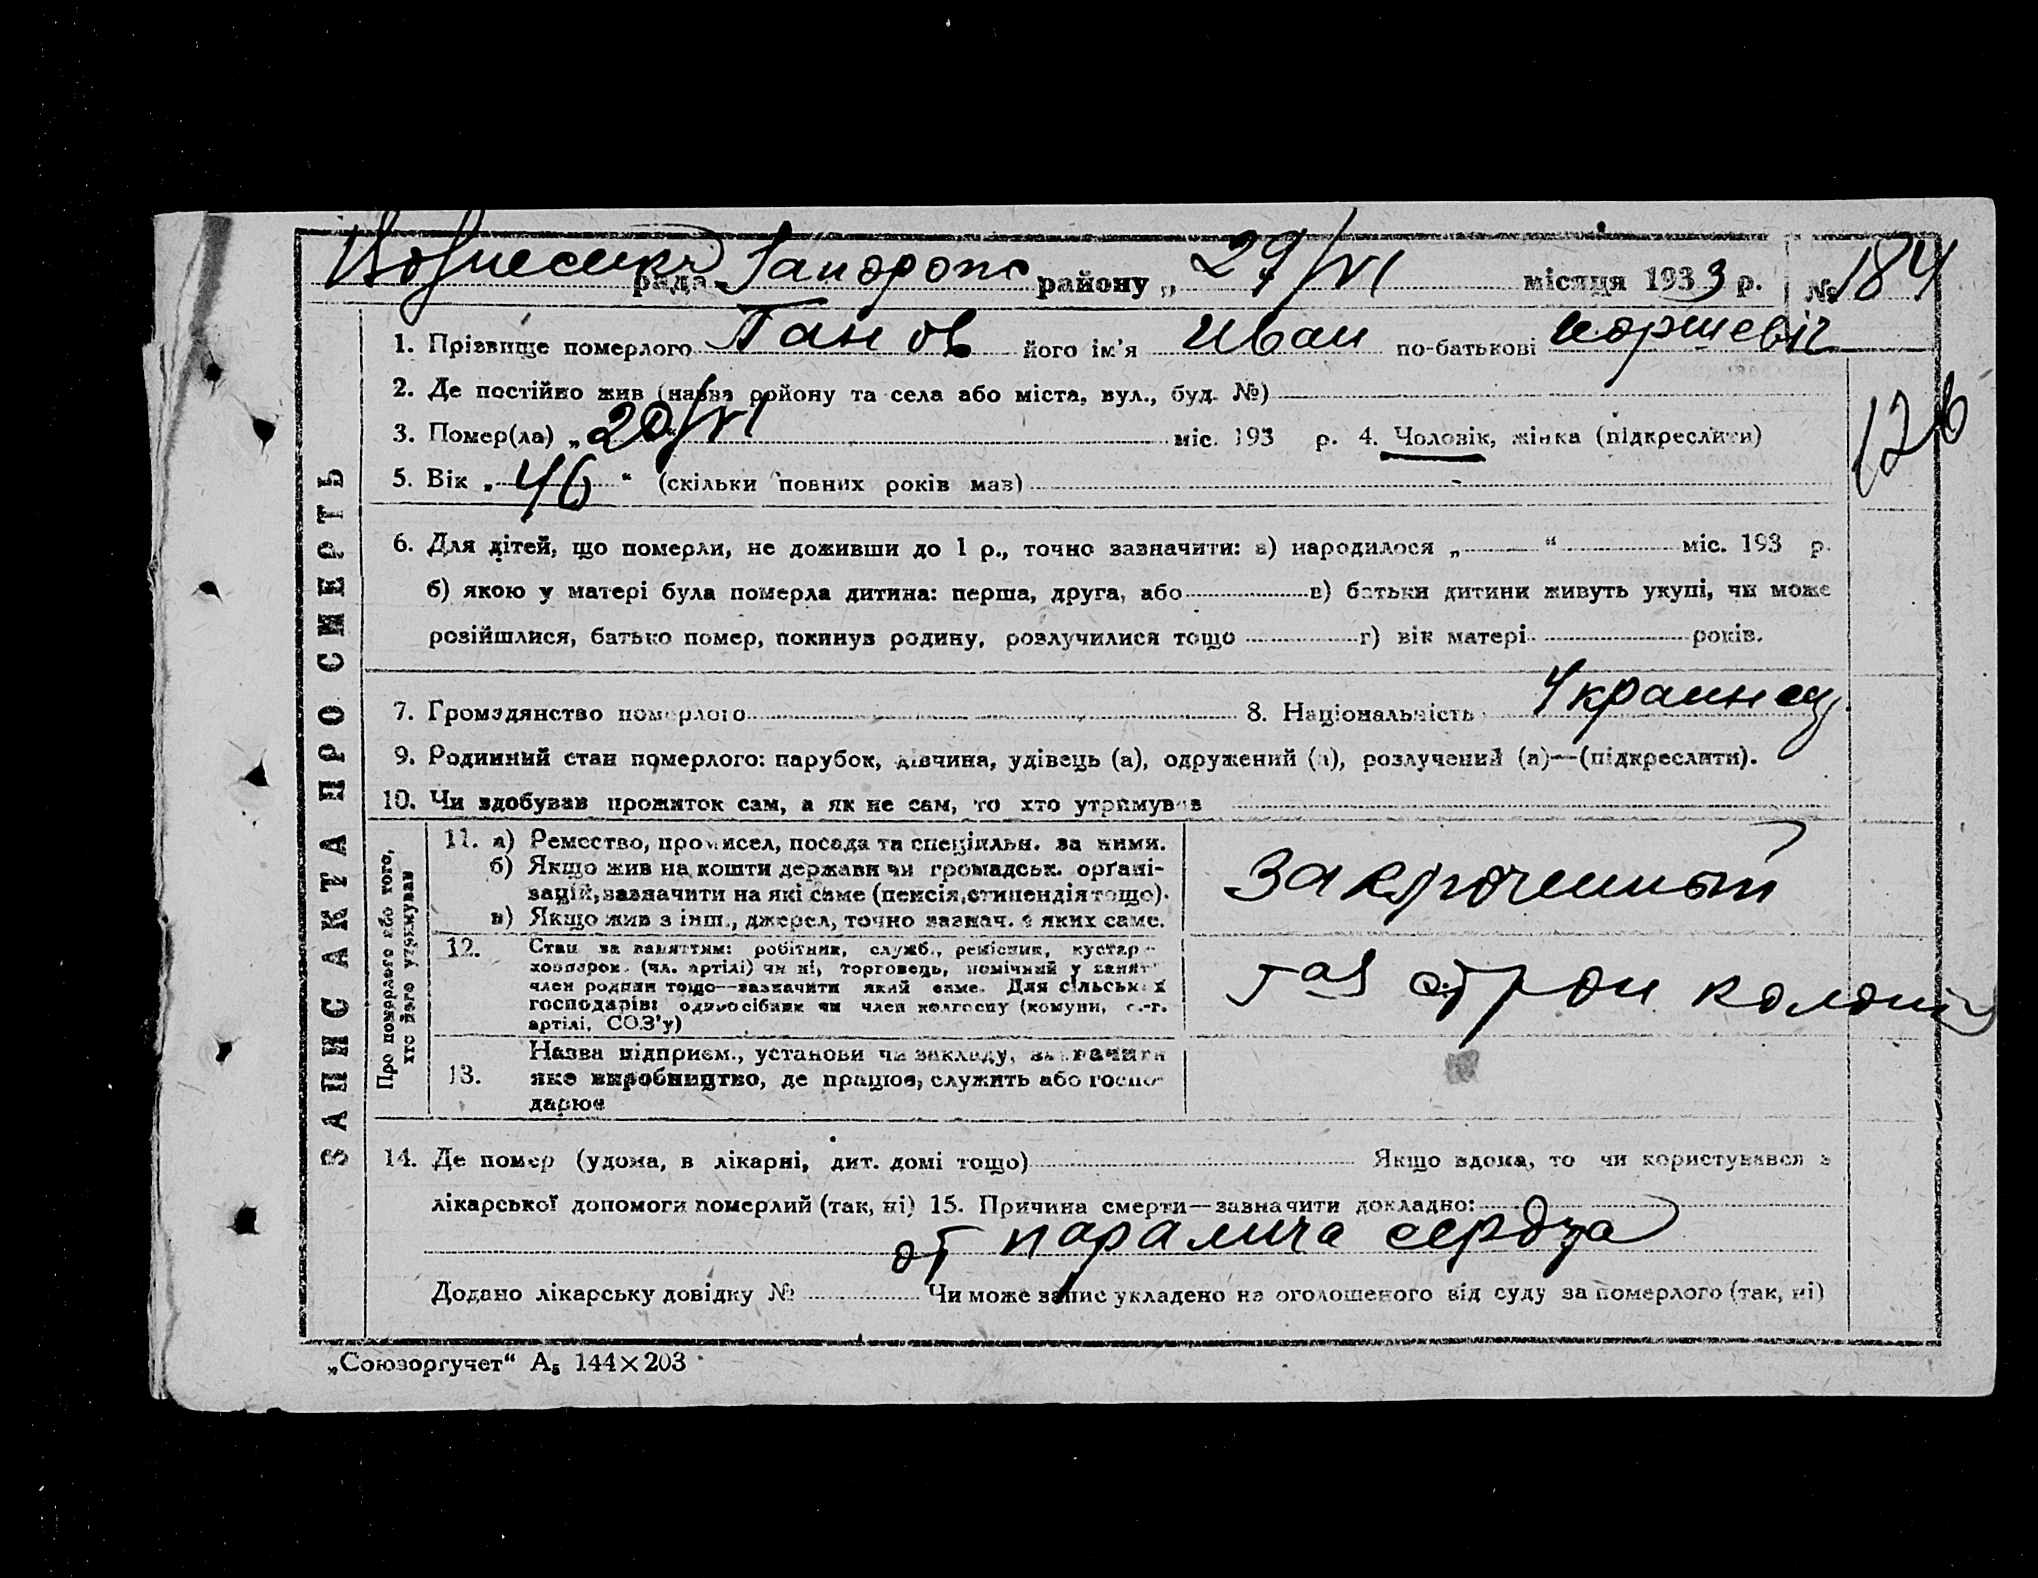 Вознесенка рада Запорож району „ 29/VI місяця 1933 р. № 184
1. Прізвище померлого Панов його ім'я Иван по-батькові
2. Де постійно жив (назва району та села або міста, вул., буд. №)
3. Помер(ла) „ 20/VI міс. 193 р. 4. Чоловік, жінка (підкреслити)
126
5. Вік „ 46 “ (скільки повних років мав)
6. Для дітей, що померли, не доживши до 1 р., точно зазначити: а) народилося „ “ міс. 193 р.
б) якою у матері була померла дитина: перша, друга, або в) батьки дитини живуть укупі, чи може
розійшлися, батько помер, покинув родину, розлучилися тощо г) вік матері років.
7. Громадянство померлого 8. Національність Украинец
9. Родинний стан померлого: парубок, дівчина, удівець (а), одружений (а), розлучений (а)—(підкреслити).
10. Чи здобував прожиток сам, а як не сам, то хто утримував
ЗАПИС АКТА ПРО СМЕРТЬ
Про померлого або того,
хто його утримував
11. а) Ремество, промисел, посада та спеціяльн. за ними.
б) Якщо жив на кошти держави чи громадськ. орґані-
зацій, зазначити на які саме (пенсія, стипендія тощо).
в) Якщо жив з інш., джерел, точно зазнач. з яких саме.
заключенный
12. Стан за заняттям: робітник, служб., ремісник, кустар-
хозяюрок. (чл. артілі) чи ні, торговець, помічний у занят
член родини тощо—зазначити який саме. Для сільськ х
господарів: одноосібник чи член колгоспу (комуни, с.-г.
артілі, СОЗ'у)
колонія
13. Назва підприєм., установи чи закладу, зазначити
яке виробництво, де працює, служить або госпо-
дарює
14. Де помер (удома, в лікарні, дит. домі тощо) Якщо вдома, то чи користувався з
лікарської допомоги померлий (так, ні) 15. Причина смерти—зазначити докладно:
от паралича сердца
Додано лікарську довідку № Чи може запис укладено на оголошеного від суду за померлого (так, ні)
„Союзоргучет“ А₅ 144×203